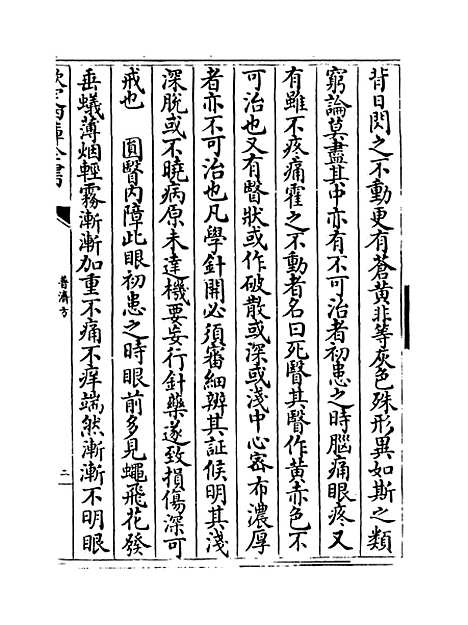 背日閃之不動更有蒼黃非等灰色殊形異如斯之類
窮論莫盡其中亦有不可治者初患之時腦痛眼疼又
有雖不疼痛霍之不動者名曰死翳其翳作黃赤色不
可治也又有翳狀或作破散或深或淺中心密布濃厚
者亦不可治也凡學針開必須審細辨其証候明其淺
深脫或不曉病原未達機要妄行針藥遂致損傷深可
戒也　圓翳內障此眼初患之時眼前多見蠅飛花發
垂蟻薄烟輕霧漸漸加重不痛不痒端然漸漸不明眼
欽定四庫全書
普濟方
二